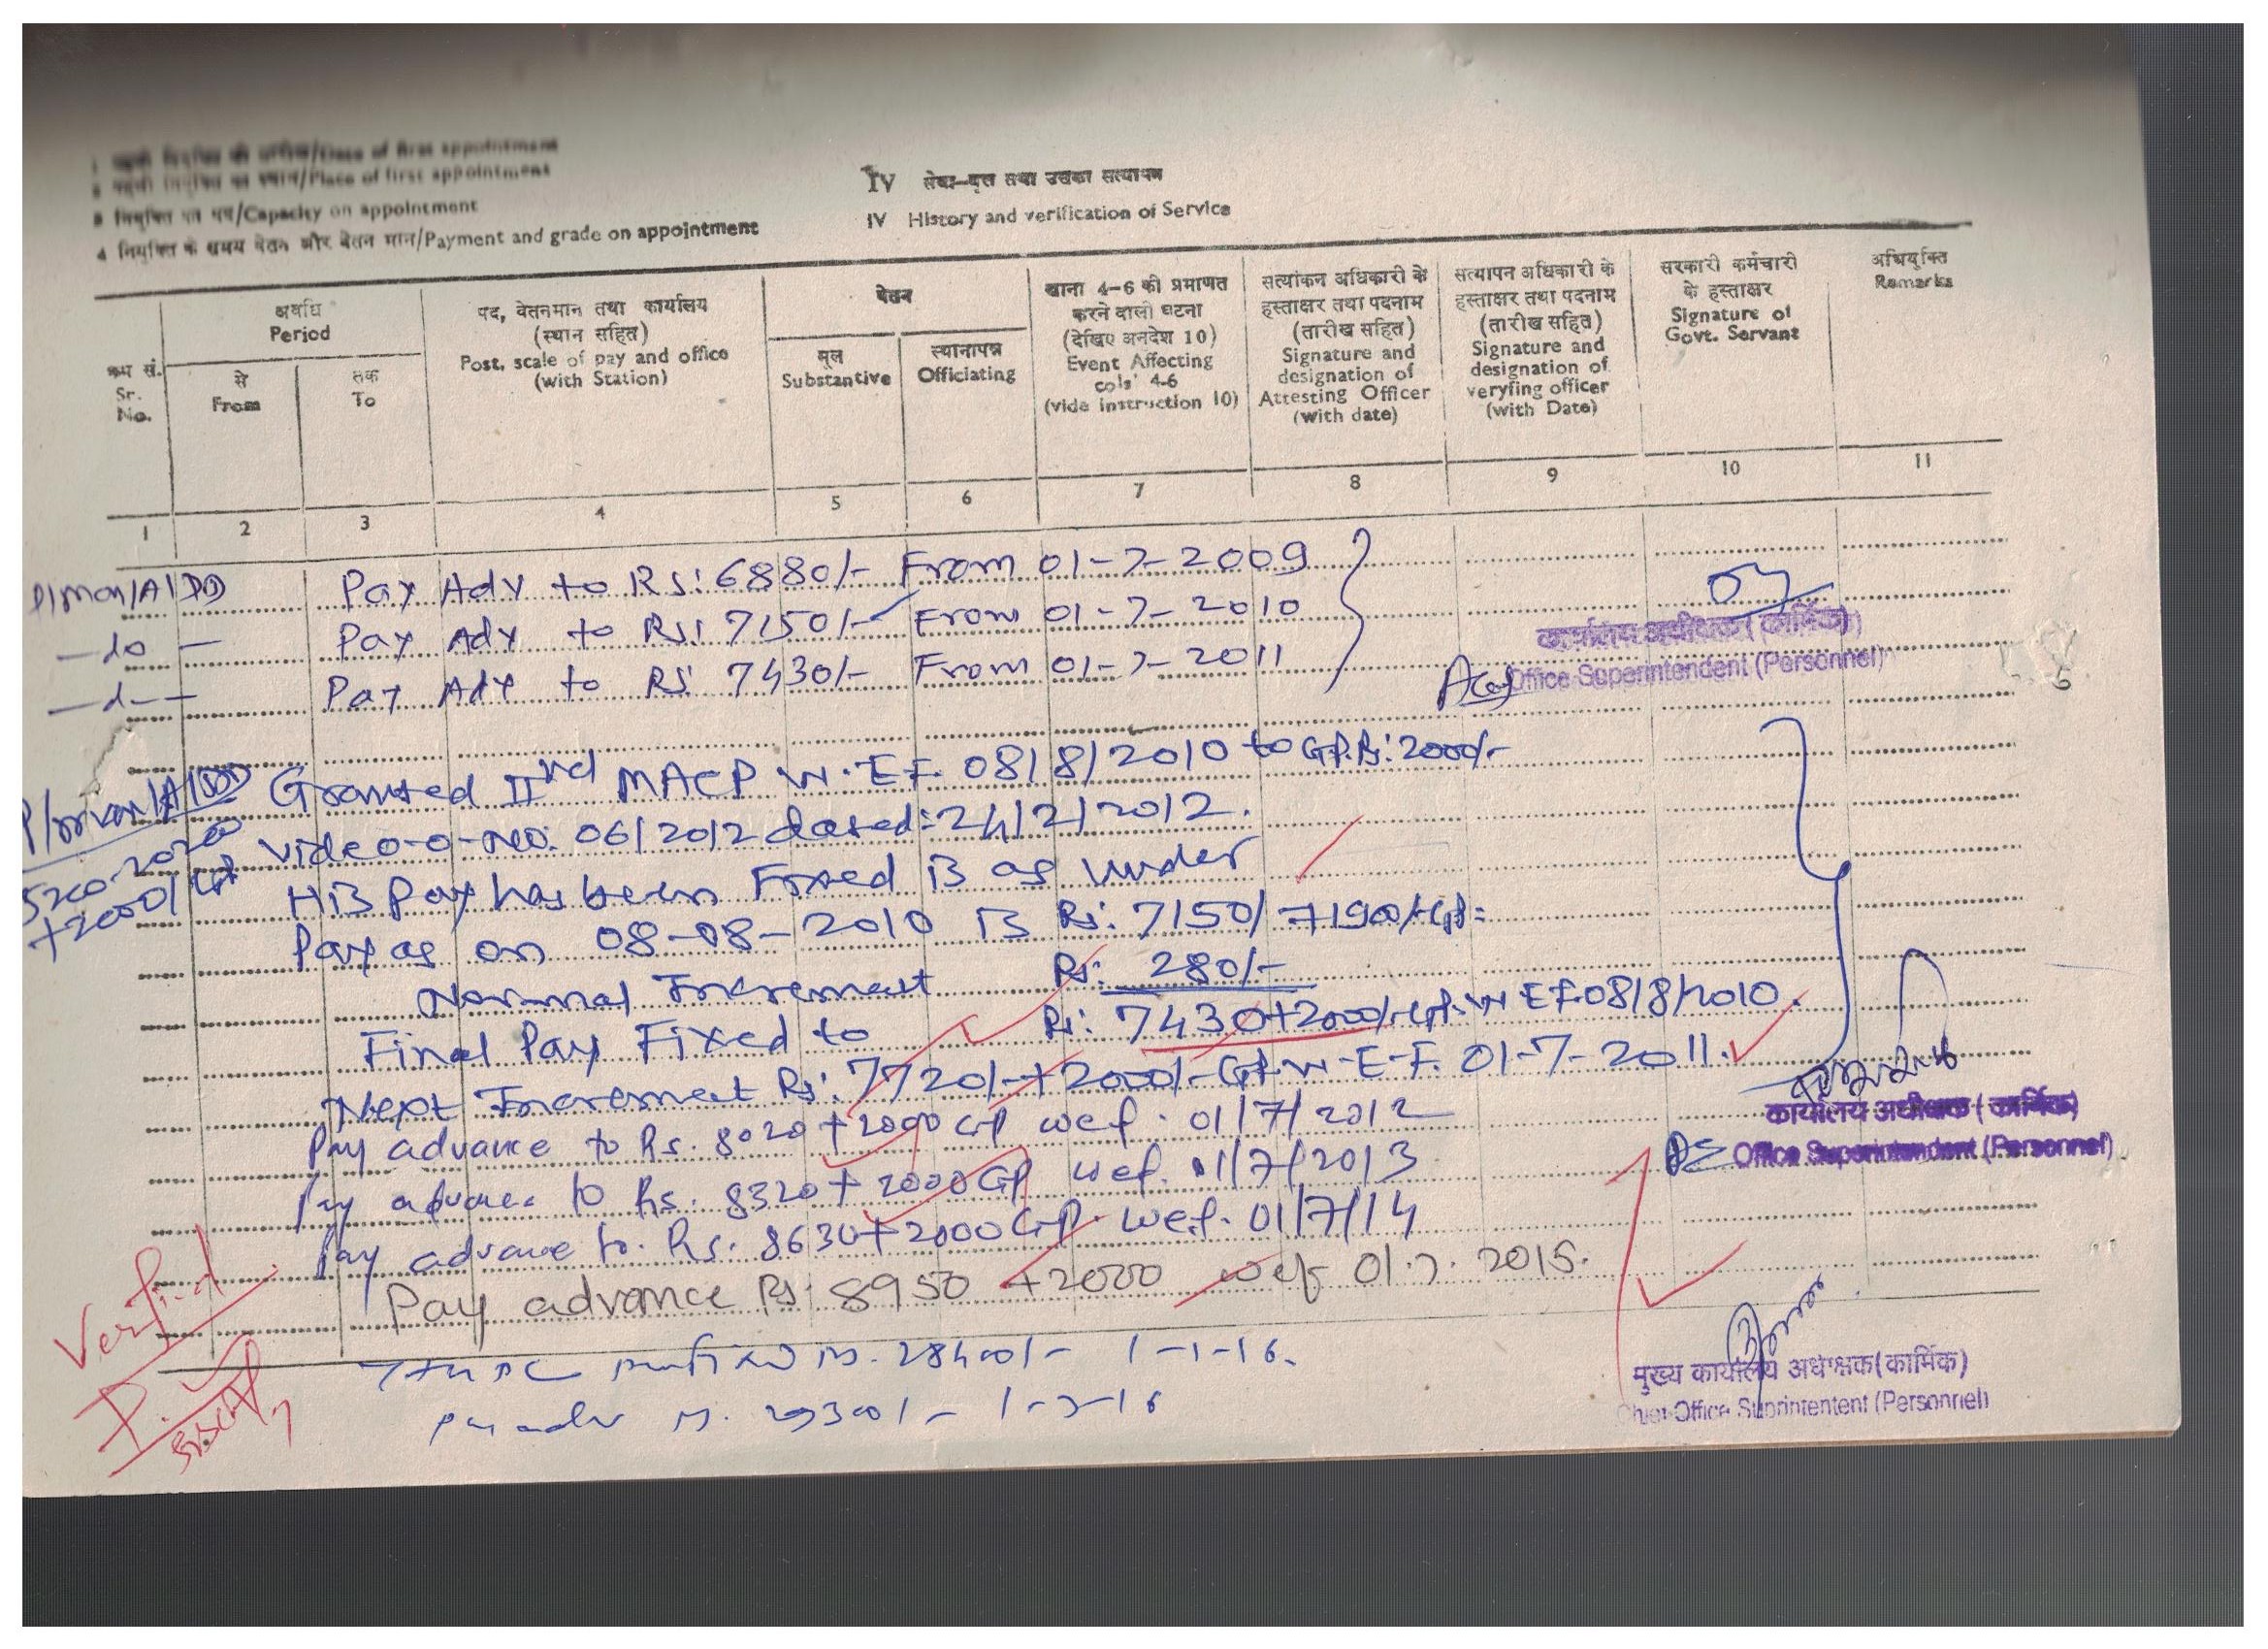 1 पहली नियुक्ति की तारीख/Date of first appointment
2 पहली नियुक्ति का स्थान/Place of first appointment
3 नियुक्ति का पद/Capacity on appointment
4 नियुक्ति के समय वेतन और वेतन मान/Payment and grade on appointment
IV सेवा-वृत्त तथा उसका सत्यापन
IV History and verification of Service
क्रम सं.
Sr.
No.
अवधि
Period
से
From
तक
To
पद, वेतनमान तथा कार्यालय
(स्थान सहित)
Post, scale of pay and office
(with Station)
वेतन
मूल
Substantive
स्थानापन्न
Officiating
खाना 4-6 की प्रमाणत
करने वाली घटना
(देखिए अनदेश 10)
Event Affecting
cols' 4-6
(vide instruction 10)
सत्यांकन अधिकारी के
हस्ताक्षर तथा पदनाम
(तारीख सहित)
Signature and
designation of
Attesting Officer
(with date)
सत्यापन अधिकारी के
हस्ताक्षर तथा पदनाम
(तारीख सहित)
Signature and
designation of
veryfing officer
(with Date)
सरकारी कर्मचारी
के हस्ताक्षर
Signature of
Govt. Servant
अभियुक्ति
Remarks
1 2 3 4 5 6 7 8 9 10 11
P/man/A/DD Pay Adv to Rs: 6880/- From 01-7-2009
-do- Pay Adv to Rs: 7150/- From 01-7-2010
-d-- Pay Adv to Rs: 7430/- From 01-7-2011
कार्यालय अधीक्षक (कार्मिक)
Office Superintendent (Personnel)
P/man/A/DD Granted IInd MACP W.E.F. 08/8/2010 to GP.Rs: 2000/-
5200-20200 vide o-o-No: 06/2012 dated: 24/2/2012.
+2000/GP His Pay has been Fixed is as under
Pay as on 08-08-2010 is Rs: 7150/ +1900/-GP=
Normal Increment Rs: 280/-
Final Pay Fixed to Rs: 7430+2000/-GP. W.E.F. 08/8/2010.
Next Increment Rs: 7720/-+2000/-GP. W-E-F. 01-7-2011.
Pay advance to Rs. 8020+2000 GP wef. 01/7/2012
Pay advance to Rs. 8320+2000 GP wef. 01/7/2013
Pay advance to Rs. 8630+2000 GP. wef. 01/7/14
Pay advance Rs. 8950 +2000 wef 01.7.2015.
कार्यालय अधीक्षक (कार्मिक)
Office Superintendent (Personnel)
Verified
7th PC 28400/- 1-1-16.
Pay adv Rs. 29300/- 1-7-16
मुख्य कार्यालय अधीक्षक (कार्मिक)
Chief Office Suprintentent (Personnel)